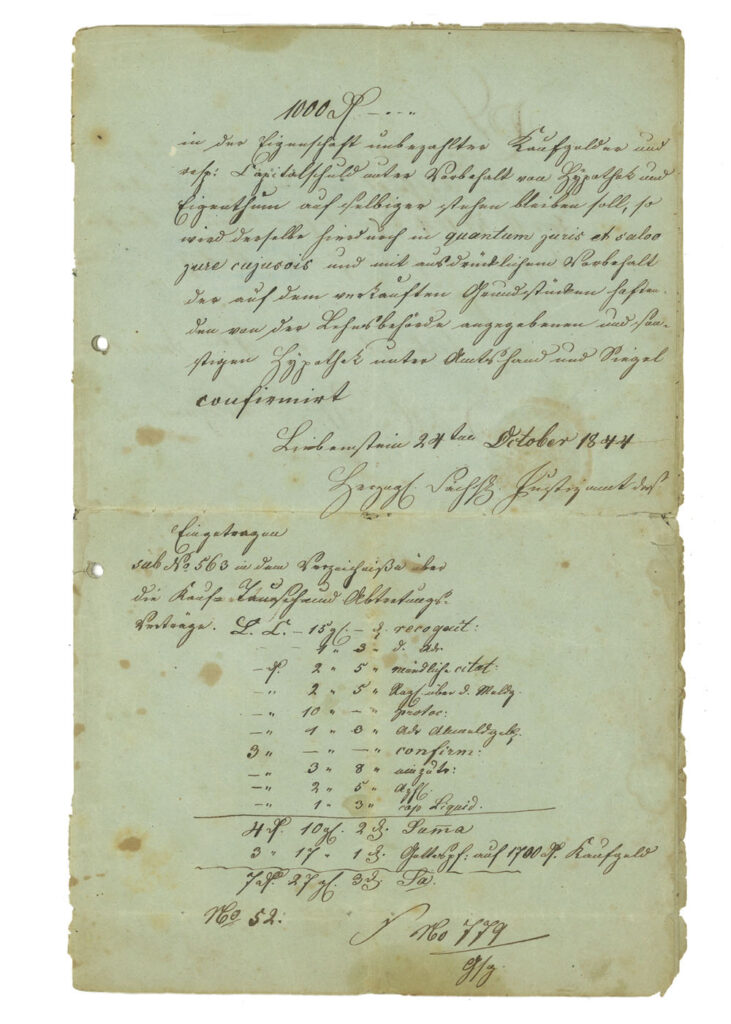 1000 ₰ – – –
in der Eigenschaft unbezahlter Kaufgelder und
resp: Capitalschuld unter Vorbehalt von Hypothek und
Eigenthum auf selbiger stehen bleiben soll, so
wird derselbe hierdurch in quantum juris et salvo
jure cujusvis und mit ausdrücklichem Vorbehalt
der auf dem verkauften Grundstücken haften-
den von der Lehnsbehörde angegebenen und son-
stigen Hypothek unter Amtshand und Siegel
confirmirt
Liebenstein 24ten October 1844
Herzogl. Sächs. Justizamt das.
Eingetragen
sub No 563 in dem Verzeichniße über
die Kauf- Tausch und Abtretungs-
Verträge. L. C. – 15 gl. – d. recognit:
1 " 3 " d.
– 2 " 5 " mündliche citat:
– " 2 " 5 " über d.
– " 10 " – " protoc:
– " 1 " 3 "
3 " – " – " confirm:
– " 3 " 8 " einzutr:
– " 2 " 5 "
– " 1 " 3 " Liquid.
4 10 gl. 2 d. Suma
3 " 17 " 1 d. auf 1700 Kaufgeld
7 27 gl. 3 d. Sa.
No 52.
No 779